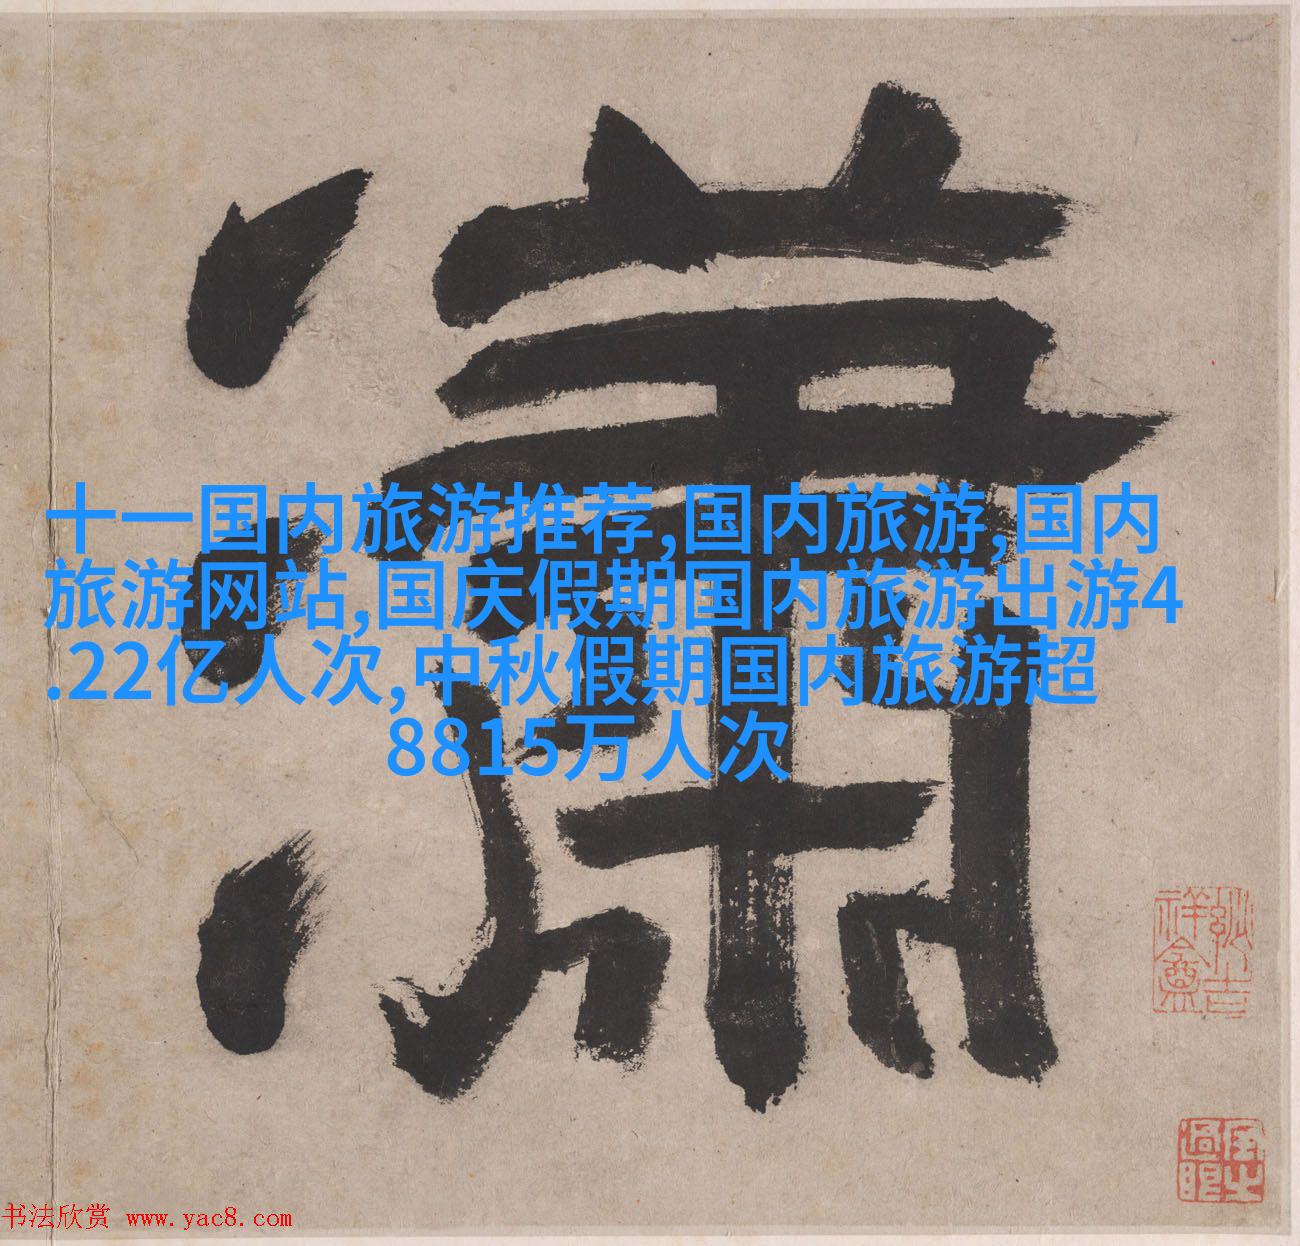 瀟
十一国内旅游推荐,国内旅游,国内
旅游网站,国庆假期国内旅游出游4
.22亿人次,中秋假期国内旅游超
8815万人次
书法欣赏 www.yac8.com